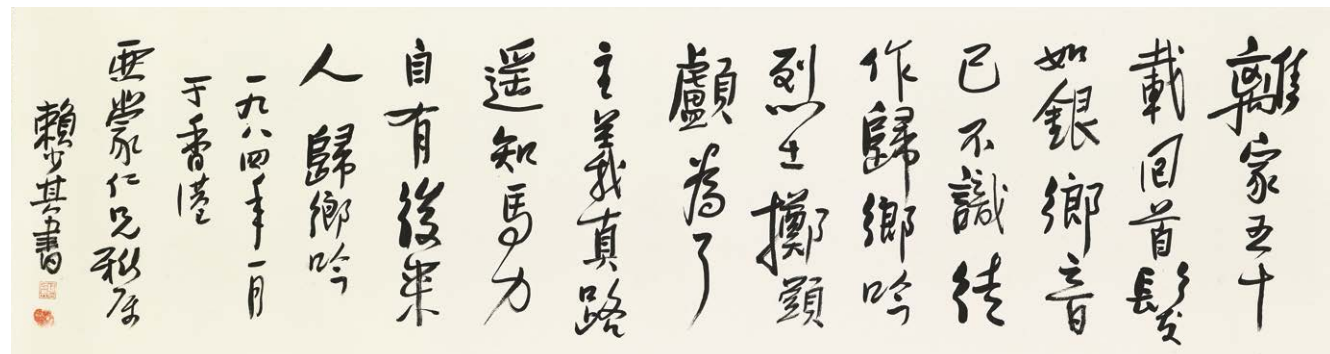 離家五十
載回首髮
如銀鄉音
已不識徒
作歸鄉吟
烈士擲頭
顱為了
主義真路
遥知馬力
自有後来
人 歸鄉吟
一九八四年一月
于香港
亞蒙仁兄雅属
賴少其書